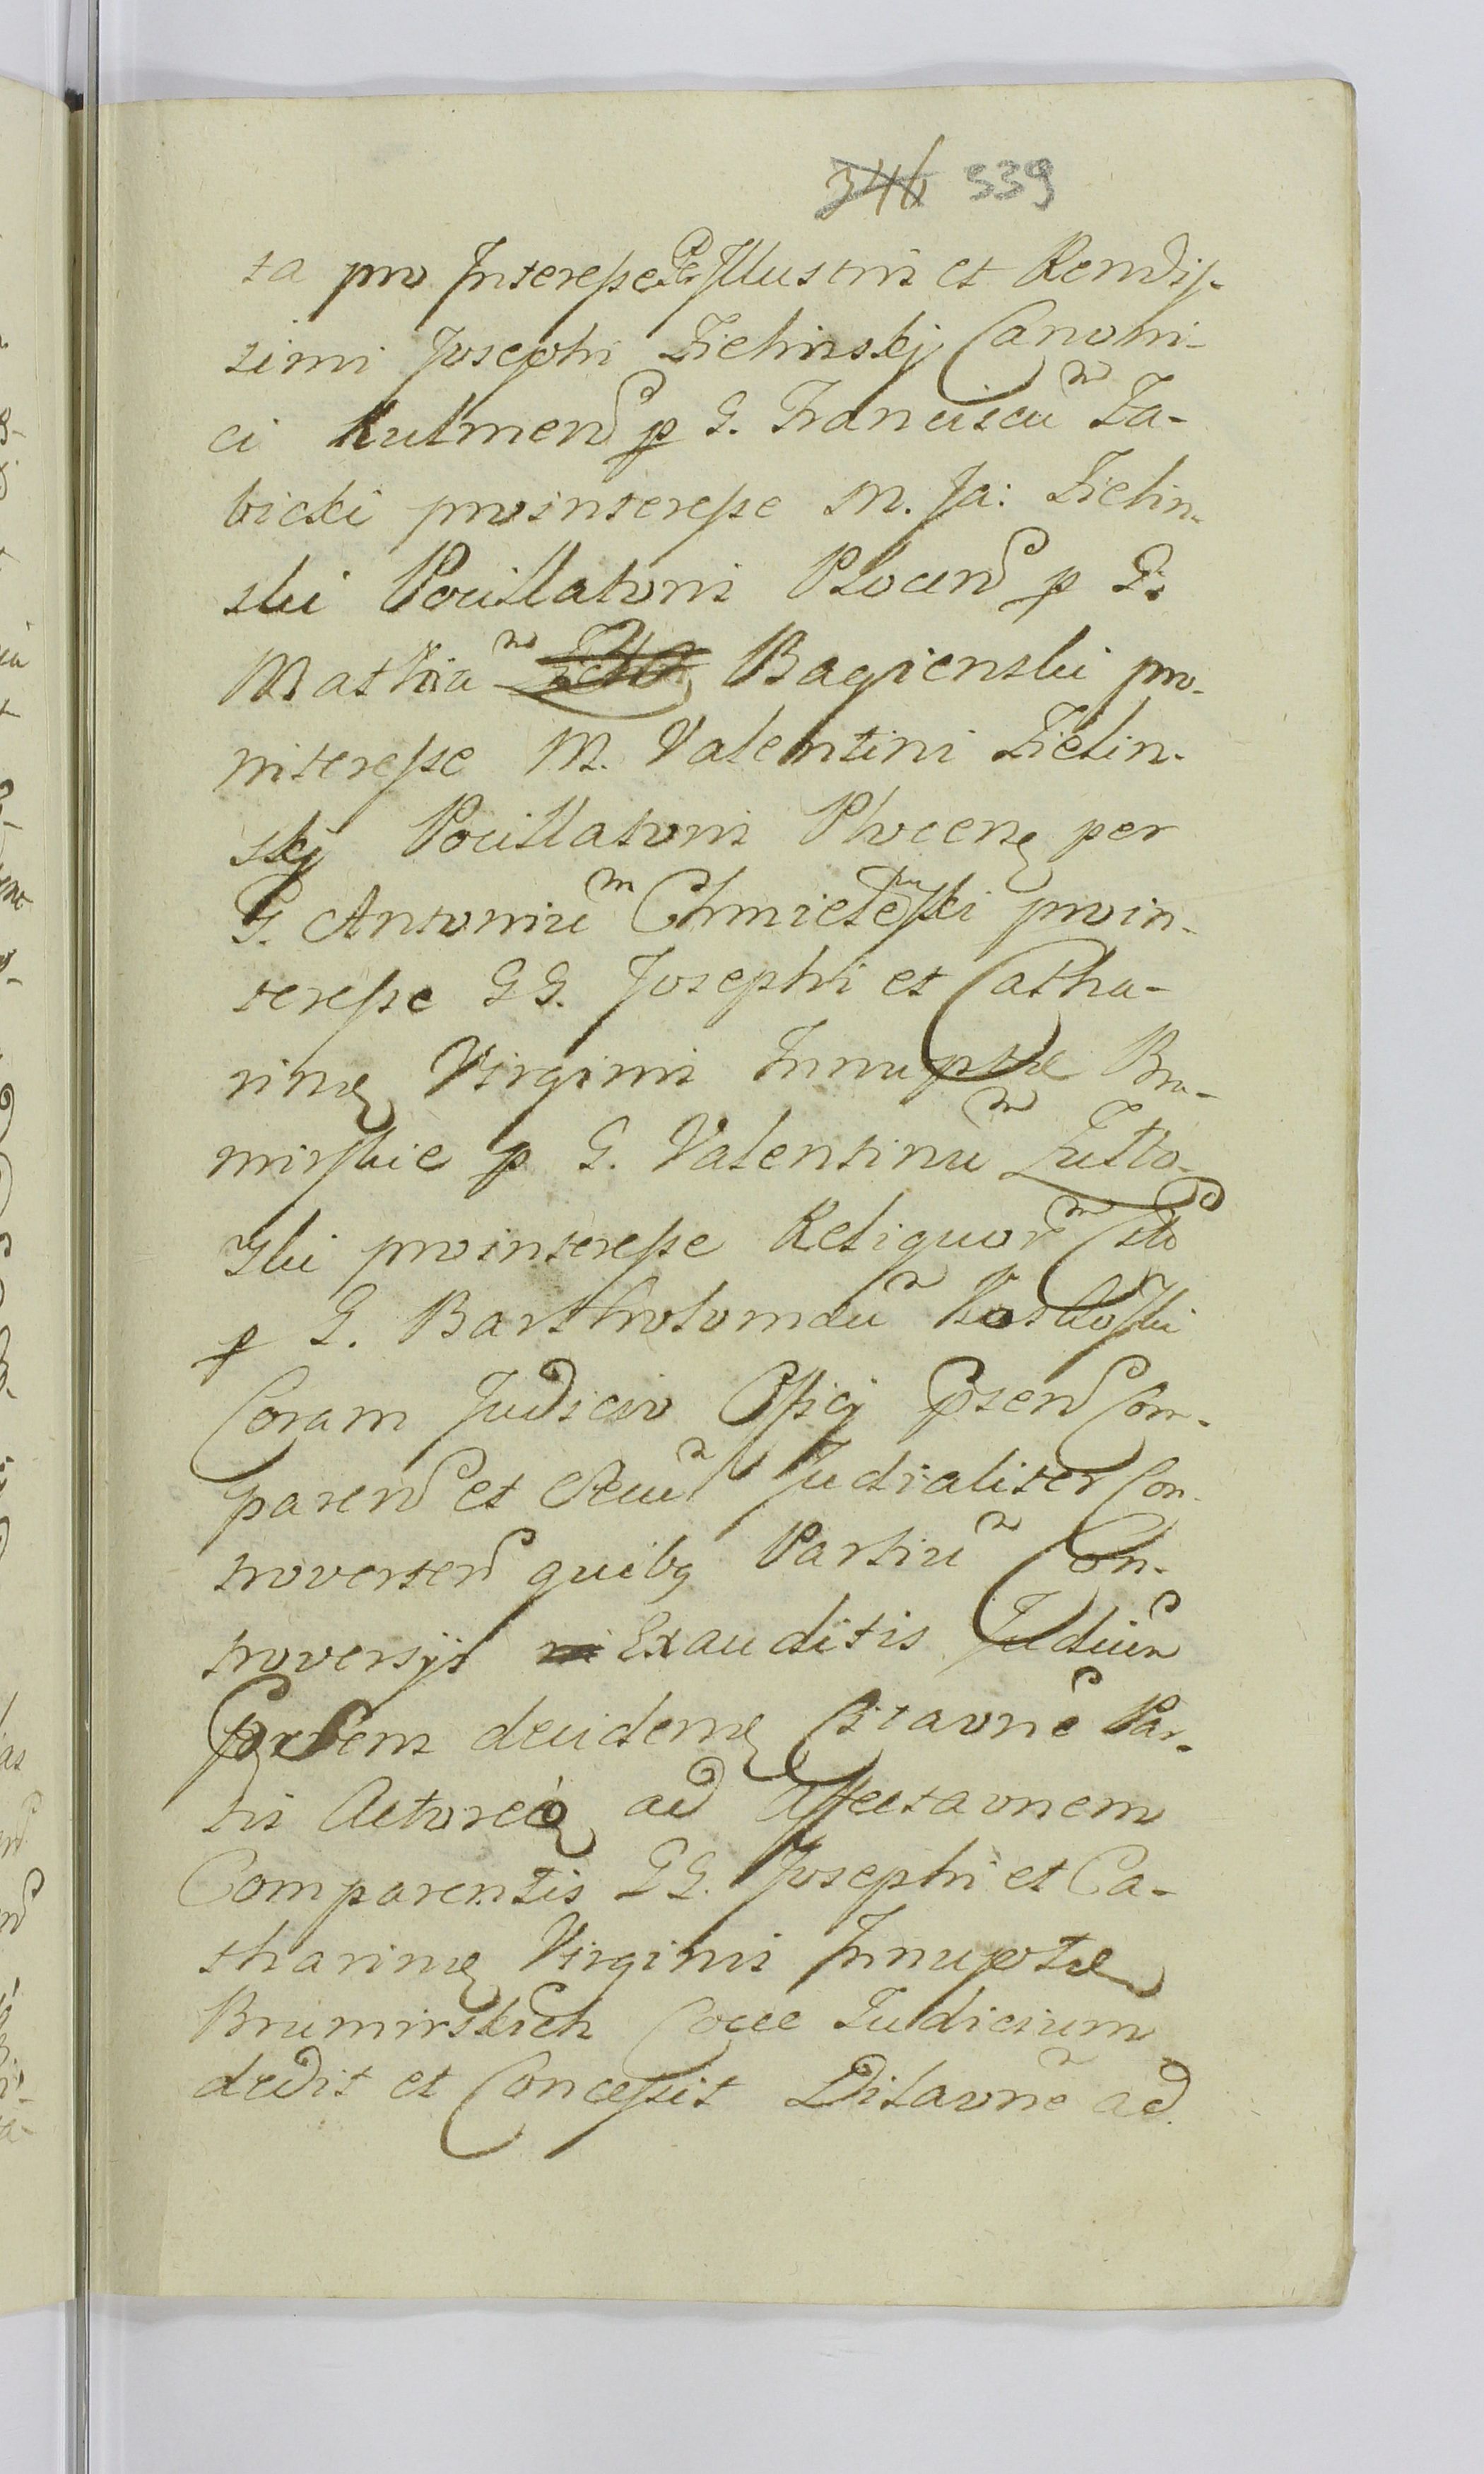 346 339
ta pro Interesse Per Illustris et Rendis-
simi Josephi Zielinskij Canoni-
ci Kulmen p G. Franciscum Za-
bicki prointeresse M. Ja: Zielin-
ski Pocillatoris Plocen p G.
Mathiam Bagienski pro-
interesse M. Valentini Zielin-
skij Pocillatoris Plocens per
G. Antonium Chmielewski proin-
teresse GG. Josephi et Catha-
rinę Virginis Innuptæ Bru-
mirskie p G. Valentinum Zutto-
wski prointeresse Reliquorum Cito
p G. Bartholomæum Kozlowski
Coram Judicio Officij psen Com-
paren et Judicialiter Con-
troverten quibq Partium Con-
troversijs Exauditis Judium
psens decidenę Citaonē Par-
tis Actoreę ad affectaonem
Comparentis GG. Josephi et Ca-
tharinę Virginis Innuptæ
Brumirskich Judicium
dedit et Concessit Dilaonē ad